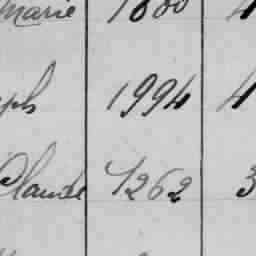 Marie 1880 4
ph 1994 4
Claude 1262 3